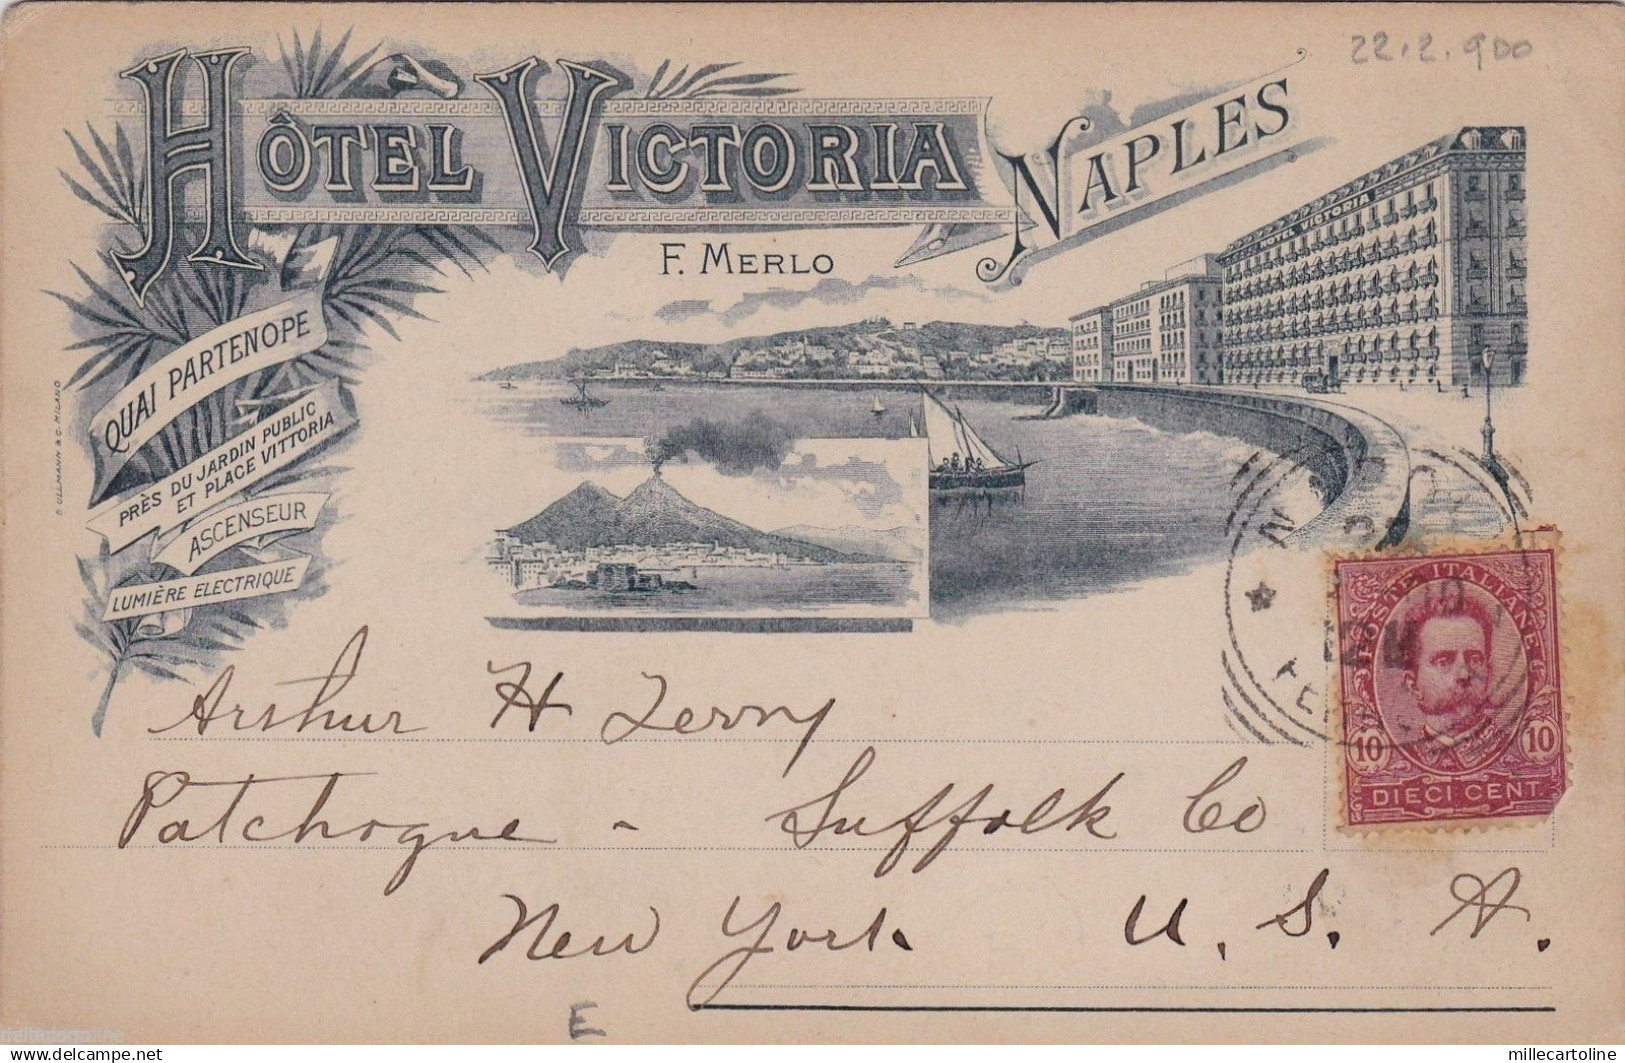 22.2.900
HÔTEL VICTORIA
NAPLES
F. MERLO
HOTEL VICTORIA
QUAI PARTENOPE
PRÈS DU JARDIN PUBLIC
ET PLACE VITTORIA
ASCENSEUR
LUMIÈRE ELECTRIQUE
POSTE ITALIANE
10 10
DIECI CENT.
Arthur H Terry
Patchogue - Suffolk Co
New York U. S. A.
E
delcampe.net
millecartoline